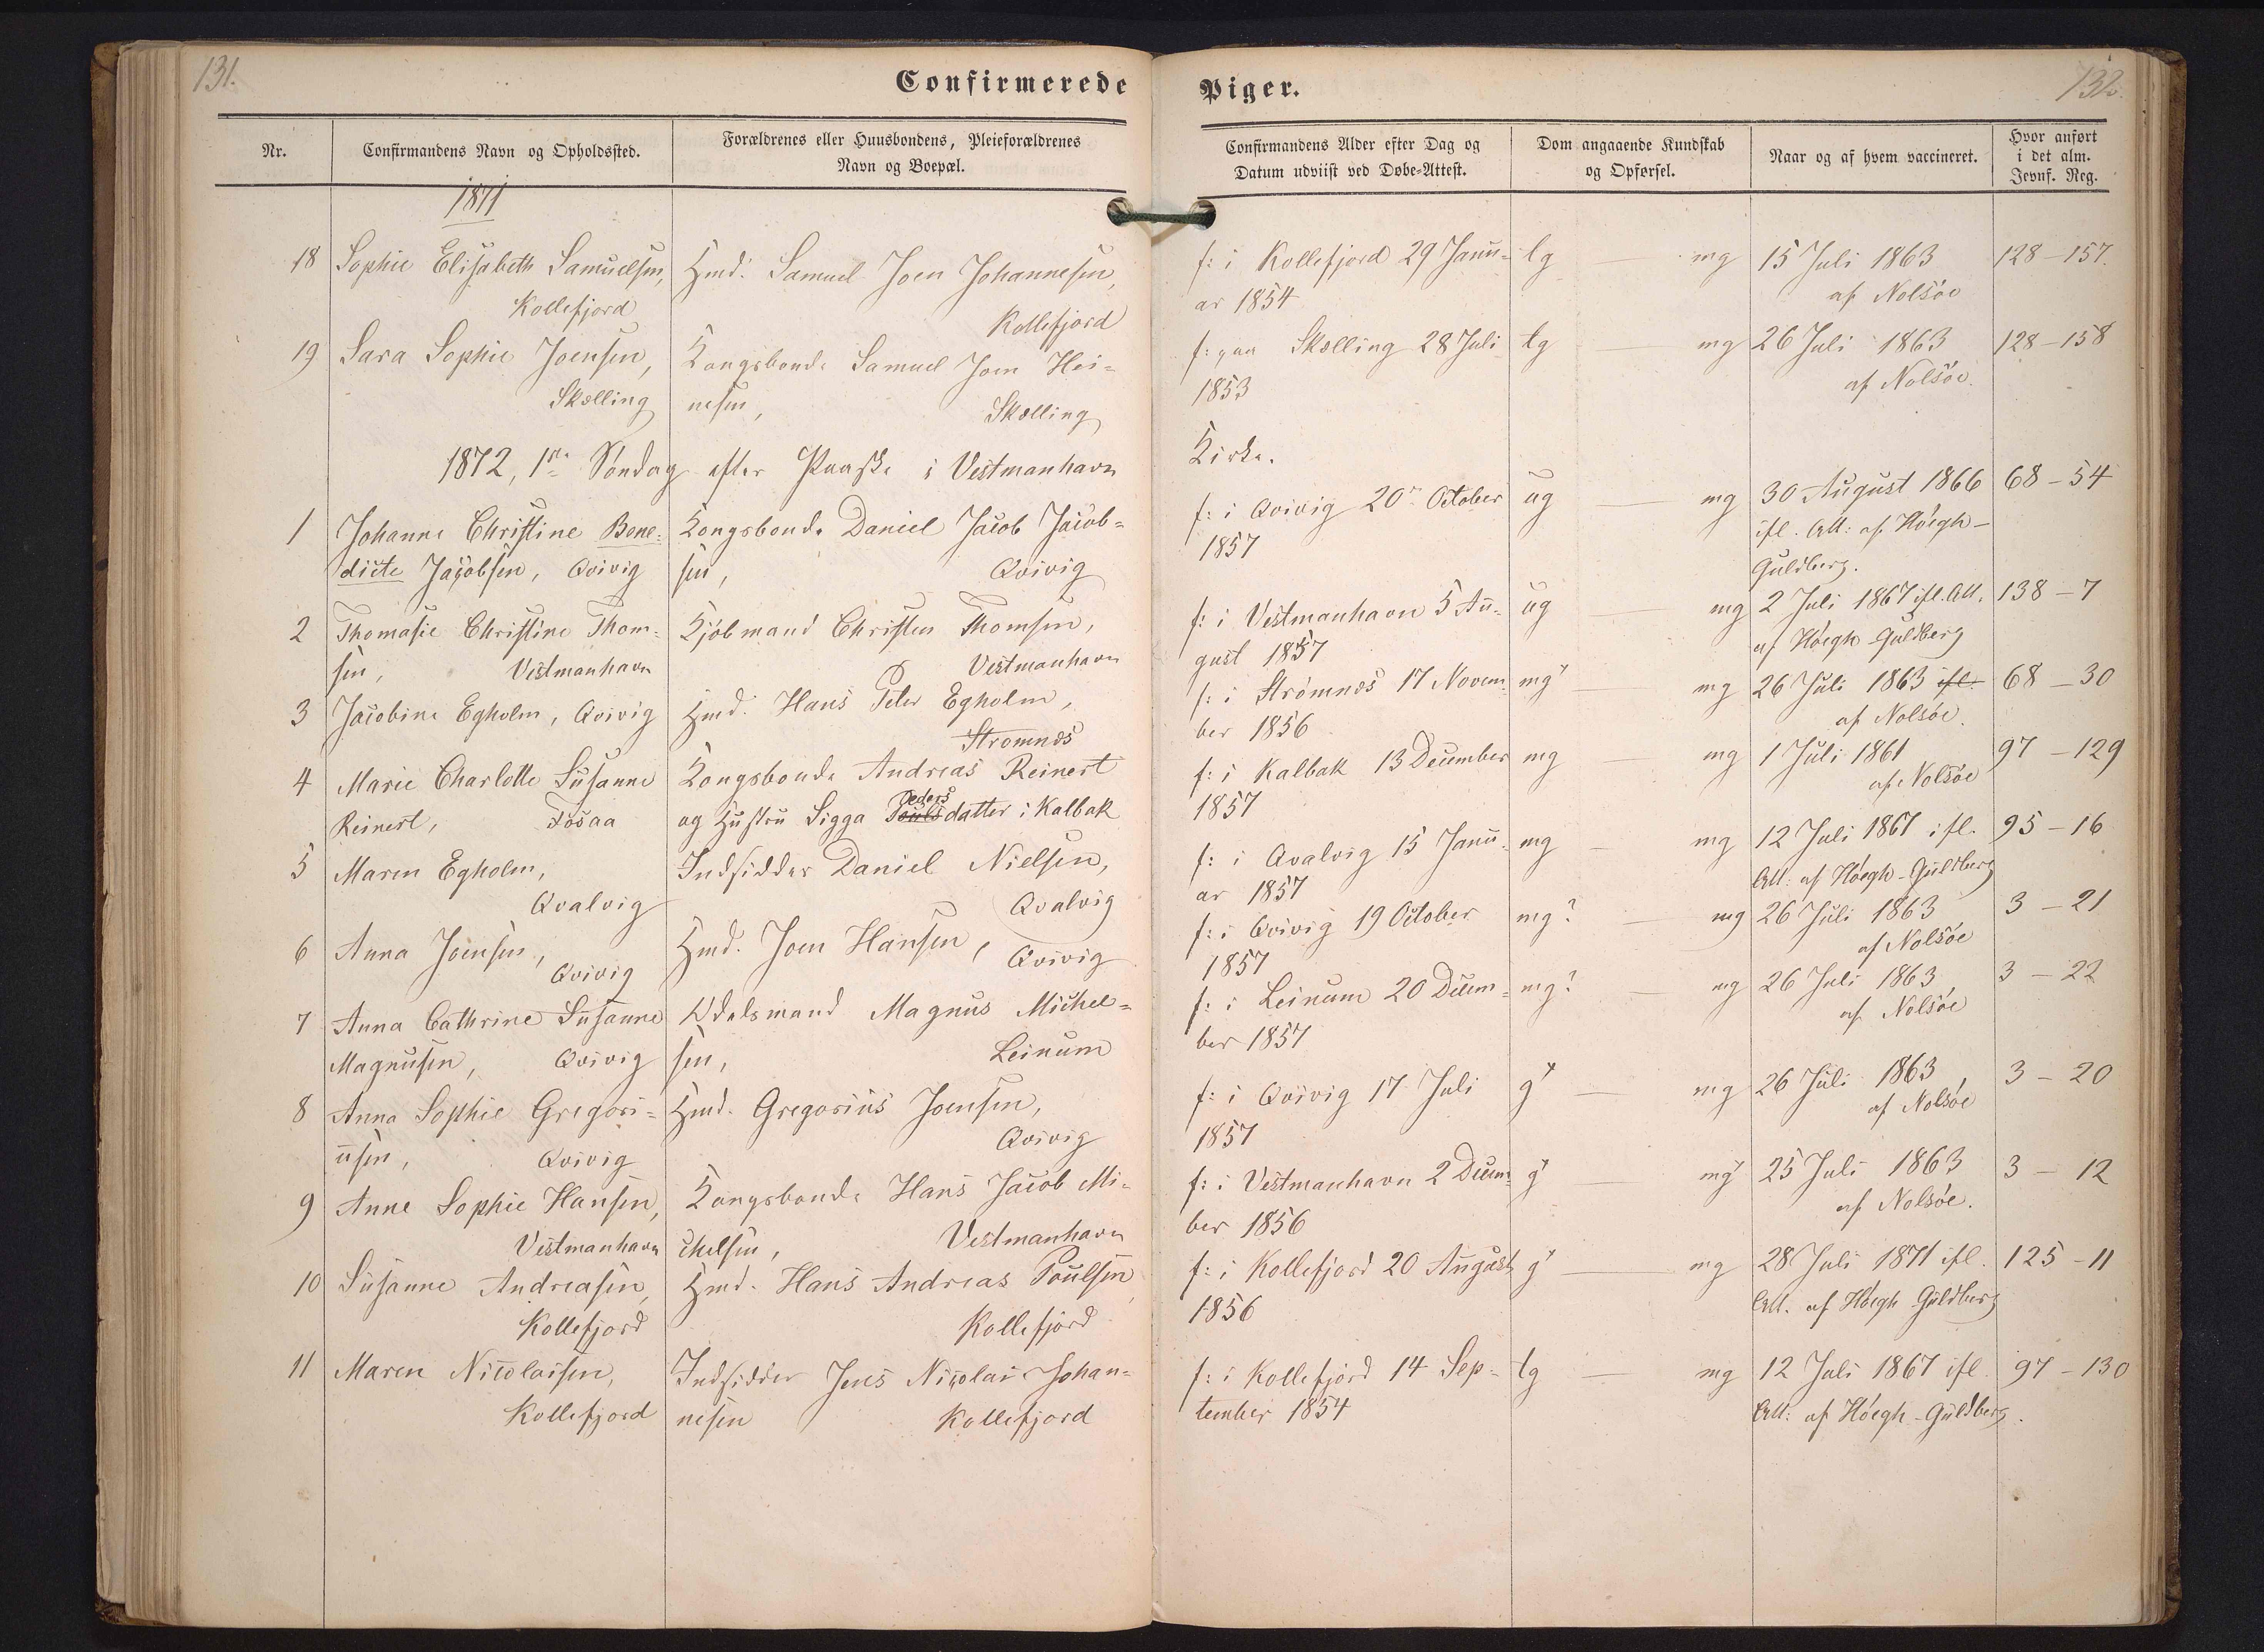 131.
Confirmerede
Nr.
Confirmandens Navn og Opholdssted.
Forældrenes eller Huusbondens, Pleieforældrenes
Navn og Boepæl.
1871
18 Sophie Elisabeth Samuelsen, Hmd. Samuel Joen Johannesen,
Kollefjord Kollefjord
19 Sara Sophie Joensen, Kongsbonde Samuel Joen Hei=
Skælling nesen, Skælling
1872, 1ste Søndag efter Paaske i Vestmanhavn
1 Johanne Christine Bene= Kongsbonde Daniel Jacob Jacob=
dicte Jacobsen, Qvivig sen, Qvivig
2 Thomasie Christine Thom= Kjöbmand Christen Thomsen,
sen, Vestmanhavn Vestmanhavn
3 Jacobine Egholm, Qvivig Hmd. Hans Peter Egholm,
Strømnæs
4 Marie Charlotte Susanne Kongsbonde Andreas Reinert
Reinert, Fosaa og Hustru Sigga Pouls Peders datter i Kalbak
5 Maren Egholm, Indsidder Daniel Nielsen,
Qvalvig Qvalvig
6 Anna Joensen, Hmd. Joen Hansen,
Qvivig Qvivig
7 Anna Cathrine Susanne Odelsmand Magnus Michel=
Magnusen, Qvivig sen, Leinum
8 Anna Sophie Gregori= Hmd. Gregorius Joensen,
usen, Qvivig Qvivig
9 Anne Sophie Hansen, Kongsbonde Hans Jacob Mi=
Vestmanhavn chelsen, Vestmanhavn
10 Susanne Andreasen, Hmd. Hans Andreas Poulsen,
Kollefjord Kollefjord
11 Maren Nicolaisen, Indsidder Jens Nicolai Johan=
Kollefjord nesen Kollefjord
132.
Piger.
Confirmandens Alder efter Dag og
Datum udviist ved Døbe=Attest.
Dom angaaende Kundskab
og Opførsel.
Naar og af hvem vaccineret.
Hvor anført
i det alm.
Jevnf. Reg.
f: i Kollefjord 29 Janu= tg — mg 15 Juli 1863 128 - 157.
ar 1854 af Nolsöe
f: paa Skælling 28 Juli tg — mg 26 Juli 1863 128 - 158
1853 af Nolsöe.
Kirke.
f: i Qvivig 20de October ug — mg 30 August 1866 68 - 54
1857 ifl. Att: af Höegh-
Guldberg.
f: i Vestmanhavn 5 Au= ug — mg 2 Juli 1867 ifl. Att. 138 - 7
gust 1857 af Höegh-Guldberg
f: i Strømnæs 17 Novem= mg+ — mg 26 Juli 1863 ifl. 68 - 30
ber 1856 af Nolsöe.
f: i Kalbak 13 December mg — mg 1 Juli 1861 97 - 129
1857 af Nolsöe
f: i Qvalvig 15 Janu= mg — mg 12 Juli 1867 ifl. 95 - 16
ar 1857 Att: af Höegh-Guldberg
f: i Qvivig 19 October mg? — mg 26 Juli 1863 3 - 21
1857 af Nolsöe
f: i Leinum 20 Decem= mg? — mg 26 Juli 1863 3 - 22
ber 1857 af Nolsöe
f: i Qvivig 17 Juli g+ — mg 26 Juli 1863, 3 - 20
1857 af Nolsöe
f: i Vestmanhavn 2 Decem= g+ — mg+ 25 Juli 1863 3 - 12
ber 1856 af Nolsöe.
f: i Kollefjord 20 August g+ — mg 28 Juli 1871 ifl. 125 - 11
1856 Att. af Höegh Guldberg
f: i Kollefjord 14 Sep= tg — mg 12 Juli 1867 ifl. 97 - 130
tember 1854 Att: af Höegh-Guldberg.